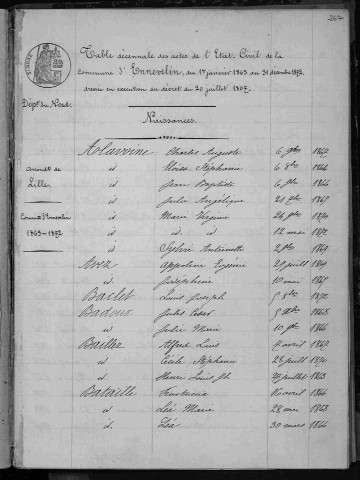 262
Table décennale des actes de l'Etat Civil de la
Commune d'Ennevelin, du 1er janvier 1863 au 31 décembre 1872,
dressée en exécution du décret du 20 juillet 1807.
Dépt du Nord.
Naissances.
Arrondt de
Lille
Commune d'Ennevelin
1863-1872
Alavoine Charles Auguste 6 9bre
id Eloïse Stéphanie 6 8bre 1864
id Jean Baptiste 6 9bre 1866
id Julie Angélique 21 8bre 1867
id Marie Virginie 24 9bre 1870
id id id 12 mai 1872
id Sylvie Antoinette 2 9bre 1869
Avez Appoline Eugénie
id Joséphine 10 mai 1867
Bailet Louis Joseph 5 8bre 1872
Badoux Jules César 1868
id Julie Marie 10 9bre 1866
Baillez Alfred Louis avril 1867
id Cécile Stéphanie 28 juillet 1870
id Henri Louis Jh juillet 1863
Bataille avril 1866
id Léa Marie 28 mai 1863
id Léa 30 mars 1866